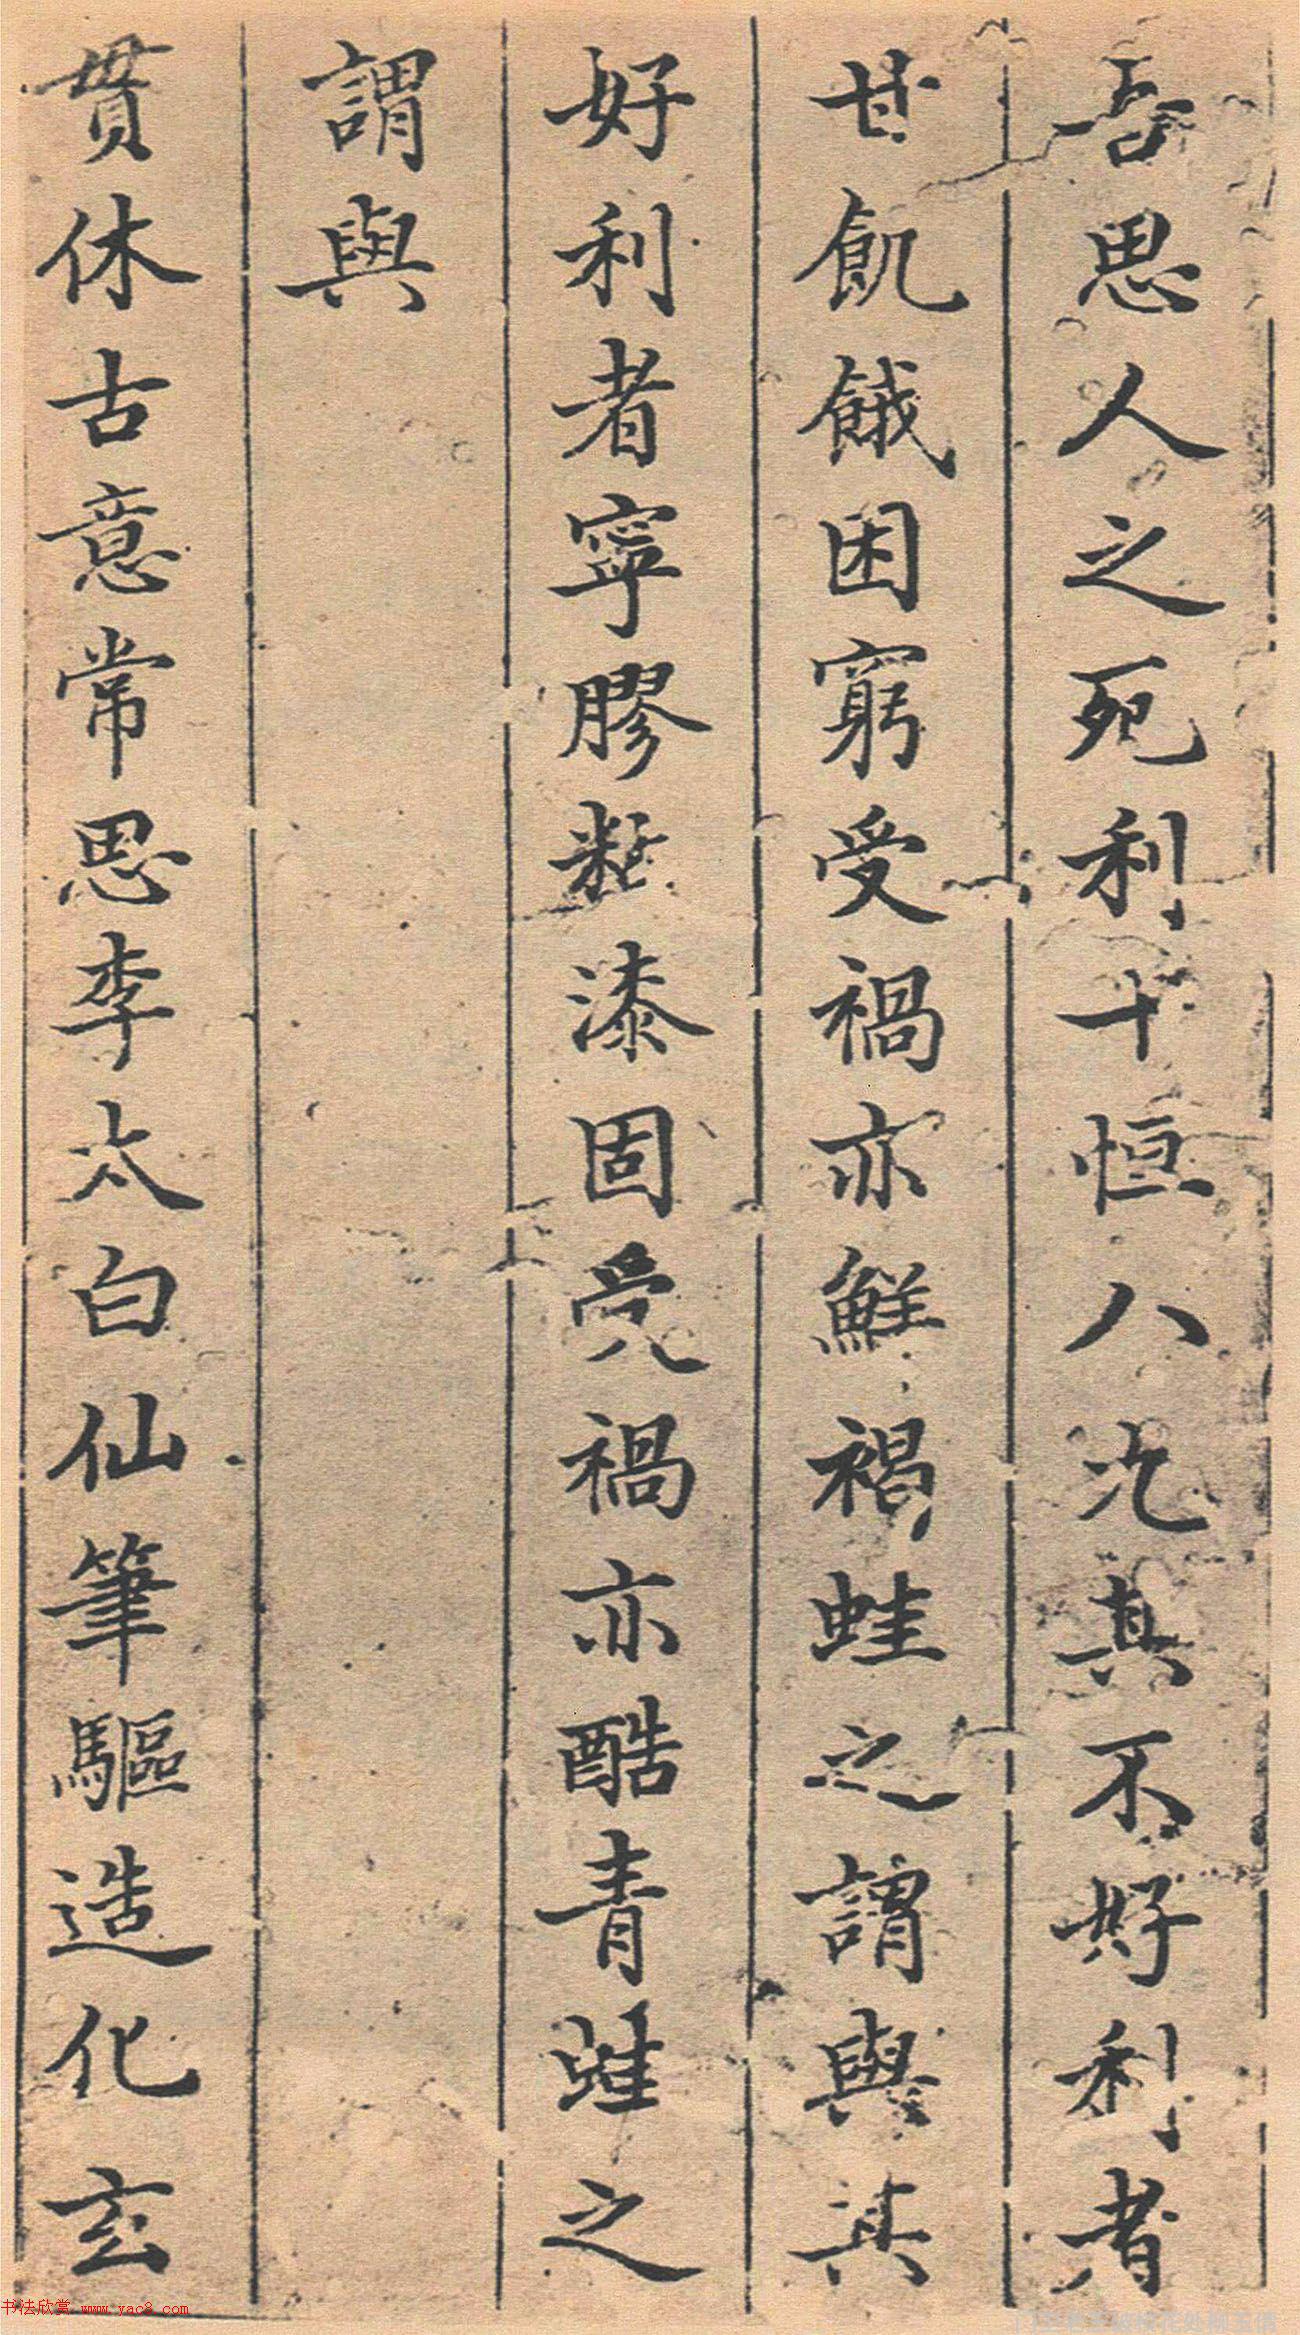 吾思人之死利十恒八九其不好利者
甘飢餓困窮受禍亦鮮褐蛙之謂與其
好利者寧膠黏漆固受禍亦酷青蛙之
謂與
貫休古意常思李太白仙筆驅造化玄
书法欣赏 www.yac8.com